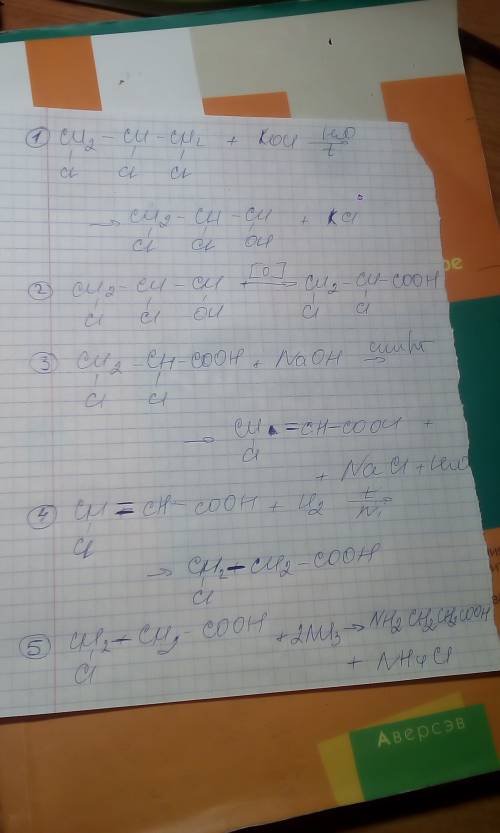 ① CH2 – CH – CH2 + KOH H2O
t
Cl Cl Cl
→ CH2 – CH – CH + KCl
Cl Cl OH
② CH2 – CH – CH [O] → CH2 – CH – COOH
Cl Cl OH Cl Cl
③ CH2 – CH – COOH + NaOH спирт →
Cl Cl
→ CH = CH – COOH +
Cl
+ NaCl + H2O
④ CH = CH – COOH + H2 t
Ni
Cl
→ CH2 – CH2 – COOH
Cl
⑤ CH2 – CH2 – COOH + 2NH3 → NH2CH2CH2COOH
Cl + NH4Cl
Аверсэв